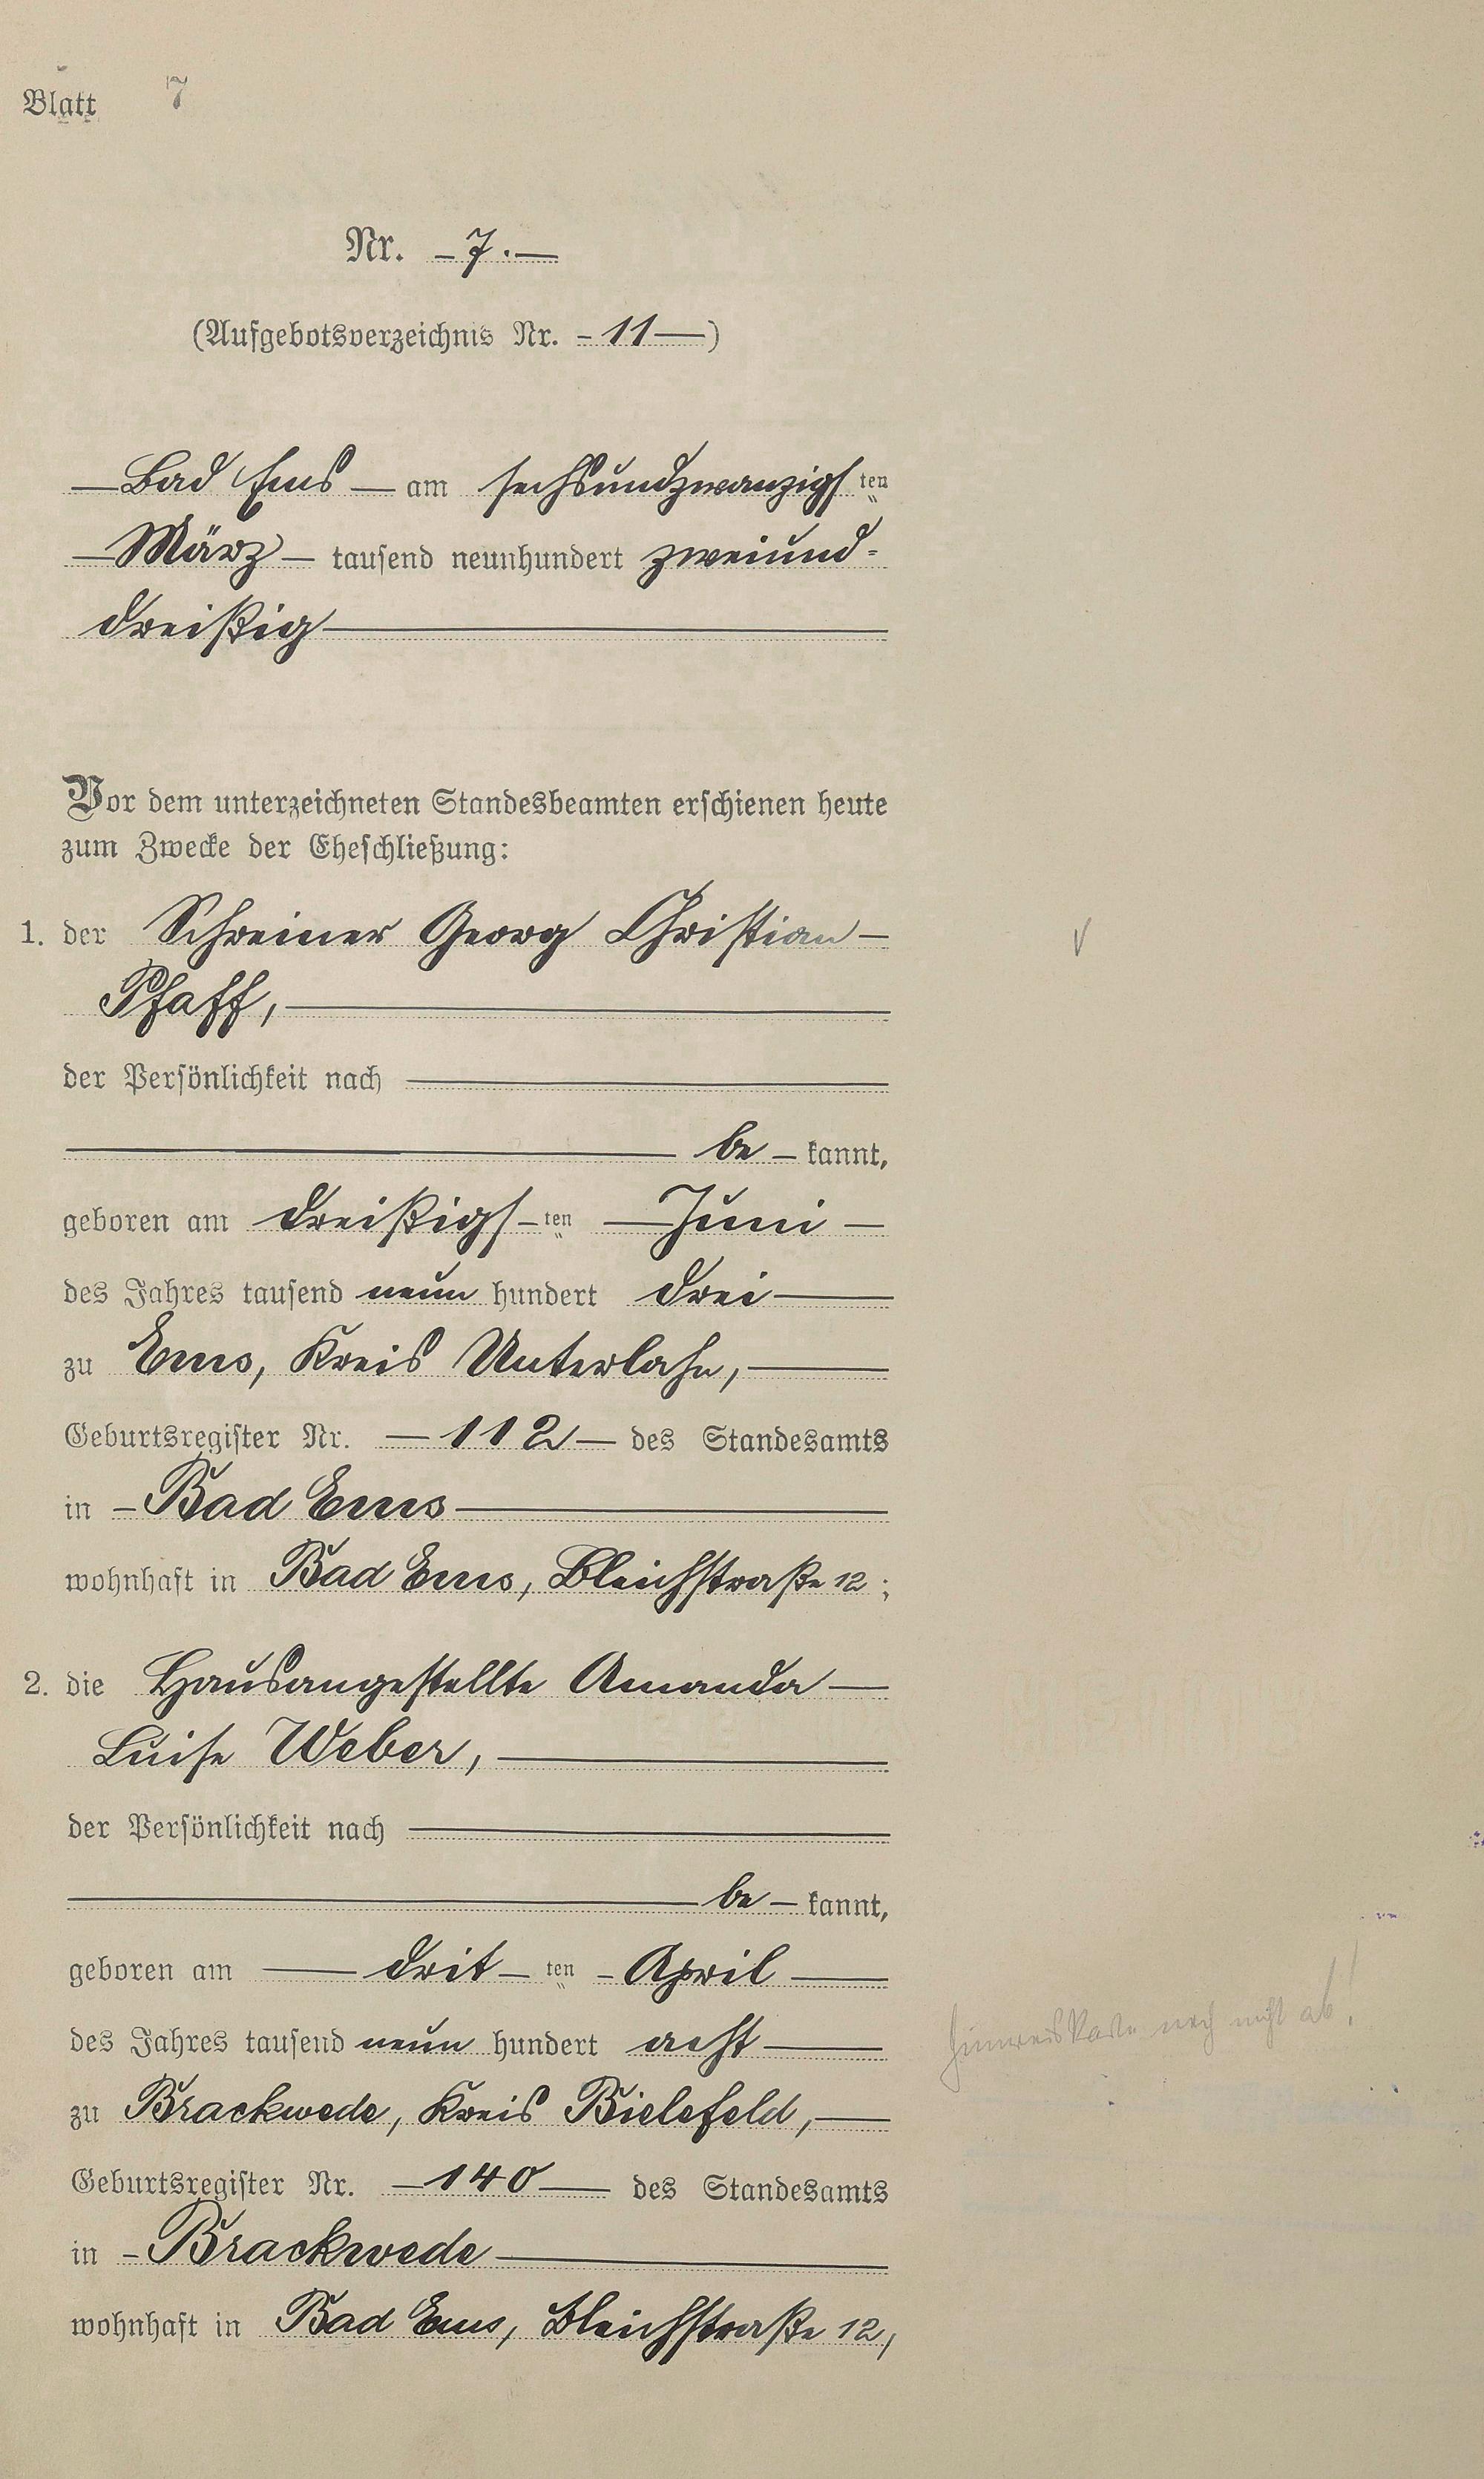 Blatt 7
Nr. – 7. –
(Aufgebotsverzeichnis Nr. – 11 —)
— Bad Ems — am sechsundzwanzigs ten
— März — tausend neunhundert zweiund=
dreißig —
Vor dem unterzeichneten Standesbeamten erschienen heute
zum Zwecke der Eheschließung:
1. der Schreiner Georg Christian —
Pfaff, —
der Persönlichkeit nach —
— be — kannt,
geboren am dreißigs – ten — Juni —
des Jahres tausend neun hundert drei —
zu Ems, Kreis Unterlahn, —
Geburtsregister Nr. — 112 — des Standesamts
in – Bad Ems —
wohnhaft in Bad Ems, Bleichstraße 12 ;
2. die Hausangestellte Amanda —
Luise Weber, —
der Persönlichkeit nach —
— be — kannt,
geboren am — drit – ten – April —
des Jahres tausend neun hundert acht —
Hinweiskarte noch nicht ab!
zu Brackwede, Kreis Bielefeld, —
Geburtsregister Nr. — 140 — des Standesamts
in – Brackwede —
wohnhaft in Bad Ems, Bleichstraße 12,